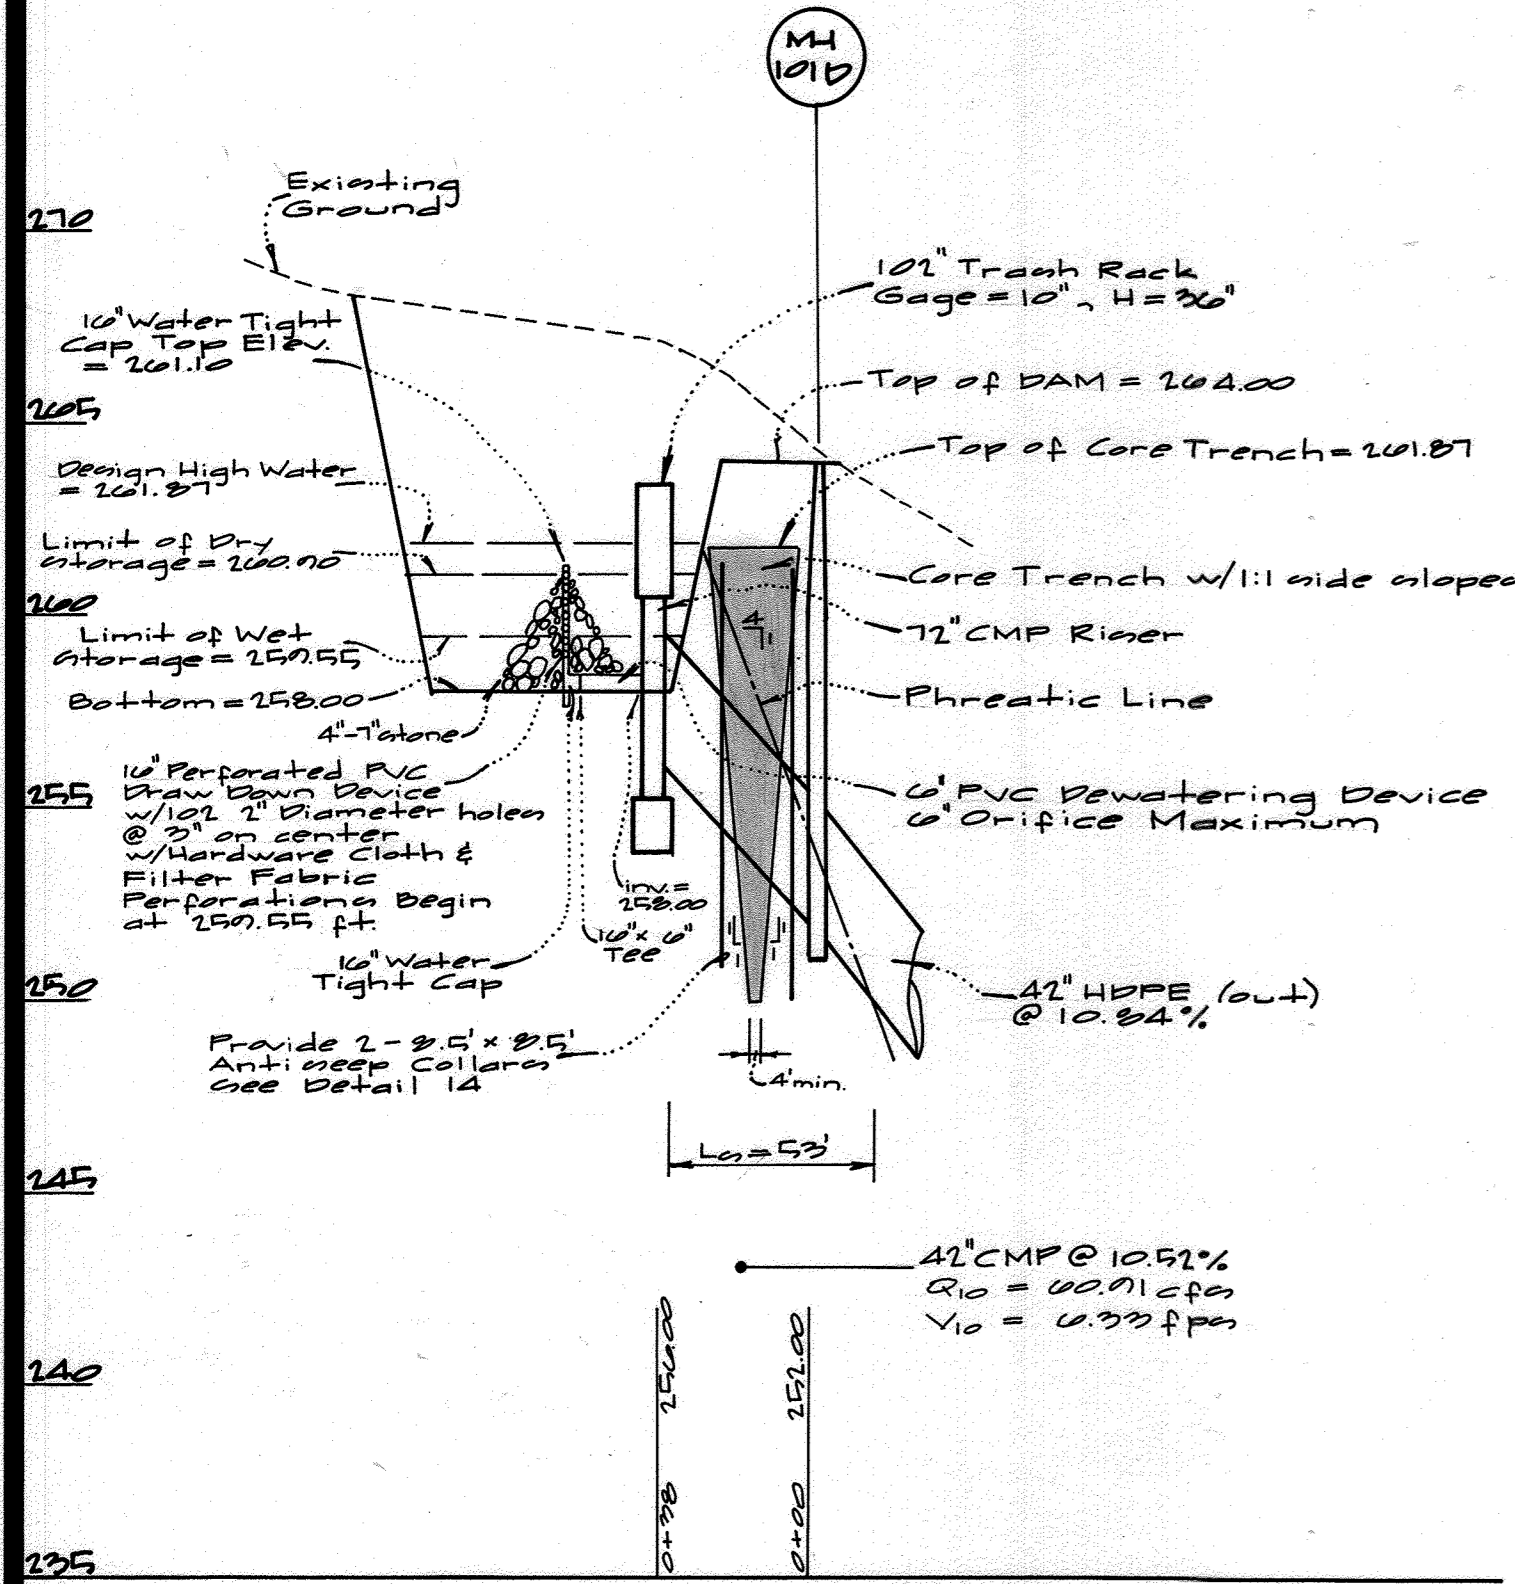 MH
101D
Existing
Ground
270
102" Trash Rack
Gage = 10", H = 36"
16" Water Tight
Cap Top Elev.
= 261.10
Top of DAM = 264.00
265
Top of Core Trench = 261.87
Design High Water
= 261.87
Limit of Dry
Storage = 260.90
Core Trench w/1:1 side slopes
260
72" CMP Riser
Limit of Wet
Storage = 259.55
4
1
Phreatic Line
Bottom = 258.00
4"-7" stone
16" Perforated PVC
Draw Down Device
w/102 2" Diameter holes
@ 3" on center
w/Hardware Cloth &
Filter Fabric
Perforations Begin
at 259.55 ft.
255
6" PVC Dewatering Device
6" Orifice Maximum
inv. =
258.00
16" x 6"
Tee
1
1
1
1
16" Water
Tight Cap
250
42" HDPE (out)
@ 10.84%
Provide 2 - 8.5' x 8.5'
Anti seep Collars
See Detail 14
4' min.
Ls = 53'
245
42" CMP @ 10.52%
Q10 = 60.91 cfs
V10 = 6.33 fps
256.00
252.00
240
0+38
0+00
235